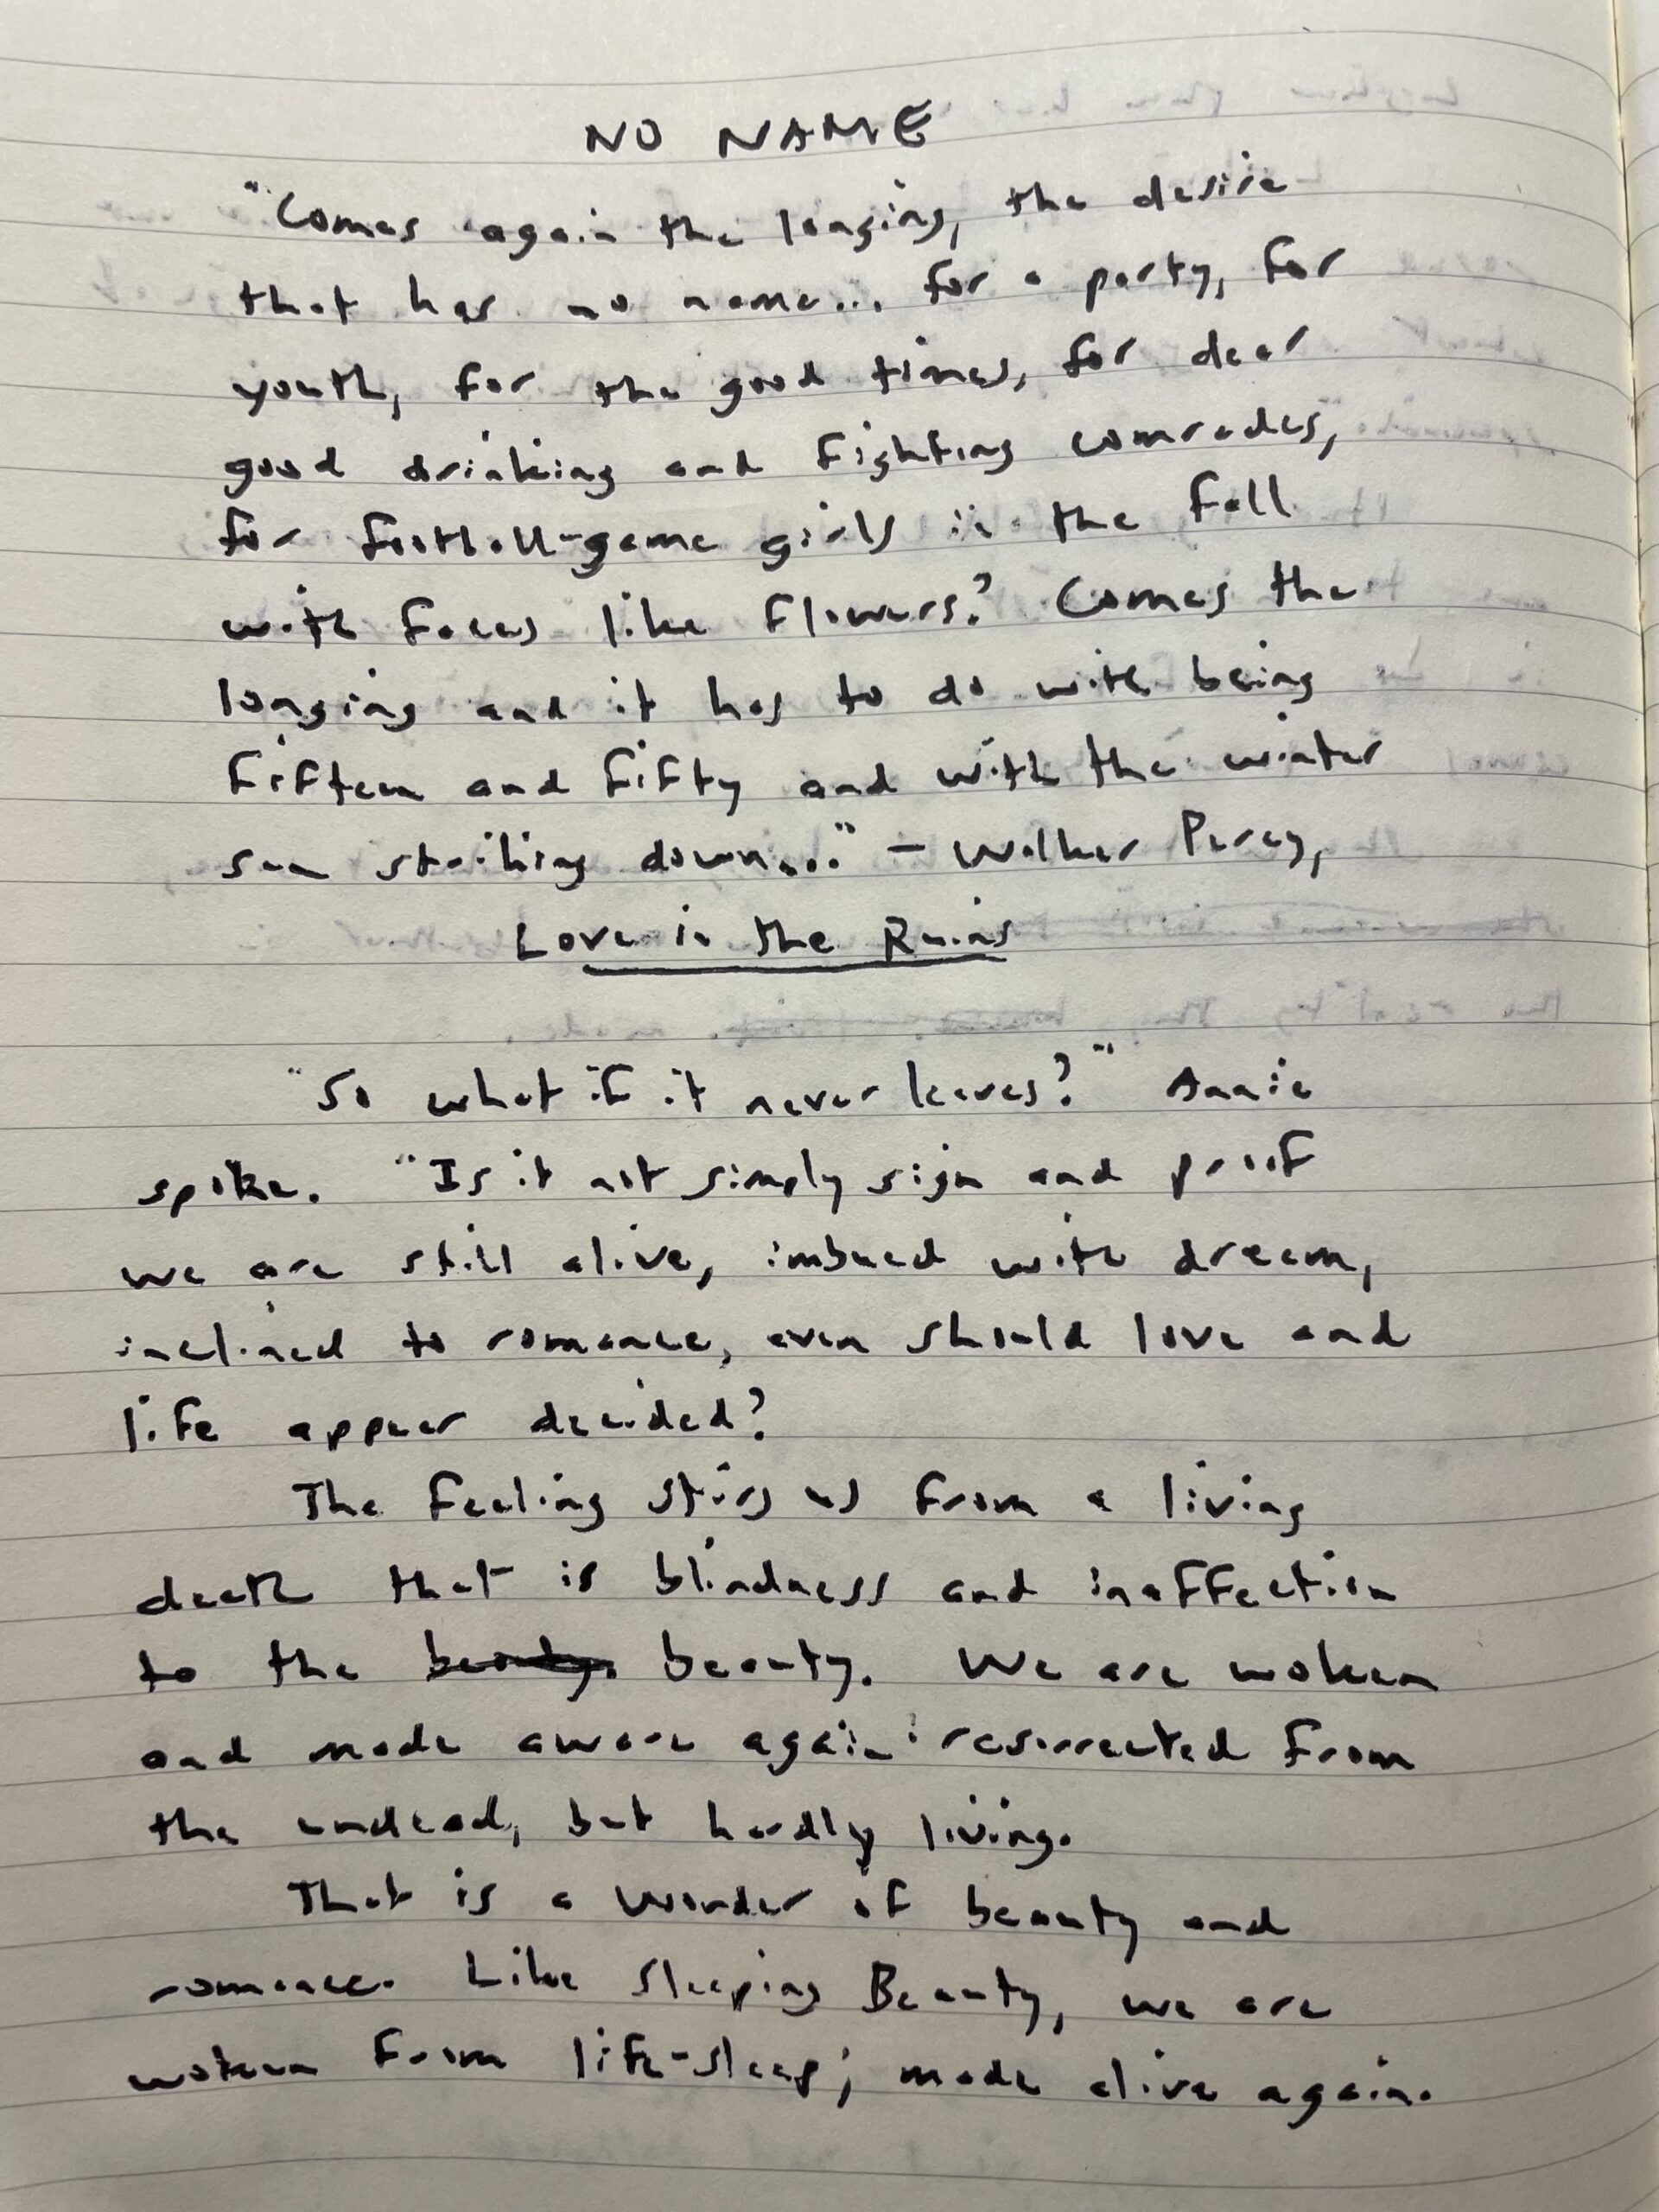 NO NAME
"Comes again the longing, the desire
that has no name... for a party, for
youth, for the good times, for dear
good drinking and fighting comrades,
for football-game girls in the fall
with faces like flowers? Comes the
longing and it has to do with being
fifteen and fifty and with the winter
sun striking down..." - Walker Percy,
Love in the Ruins
"So what if it never leaves?" Annie
spoke. "Is it not simply sign and proof
we are still alive, imbued with dream,
inclined to romance, even should love and
life appear decided?
The feeling stirs us from a living
death that is blindness and inaffection
to the beauty. beauty. We are woken
and made aware again: resurrected from
the undead, but hardly living.
That is a wonder of beauty and
romance. Like Sleeping Beauty, we are
woken from life-sleep; made alive again.